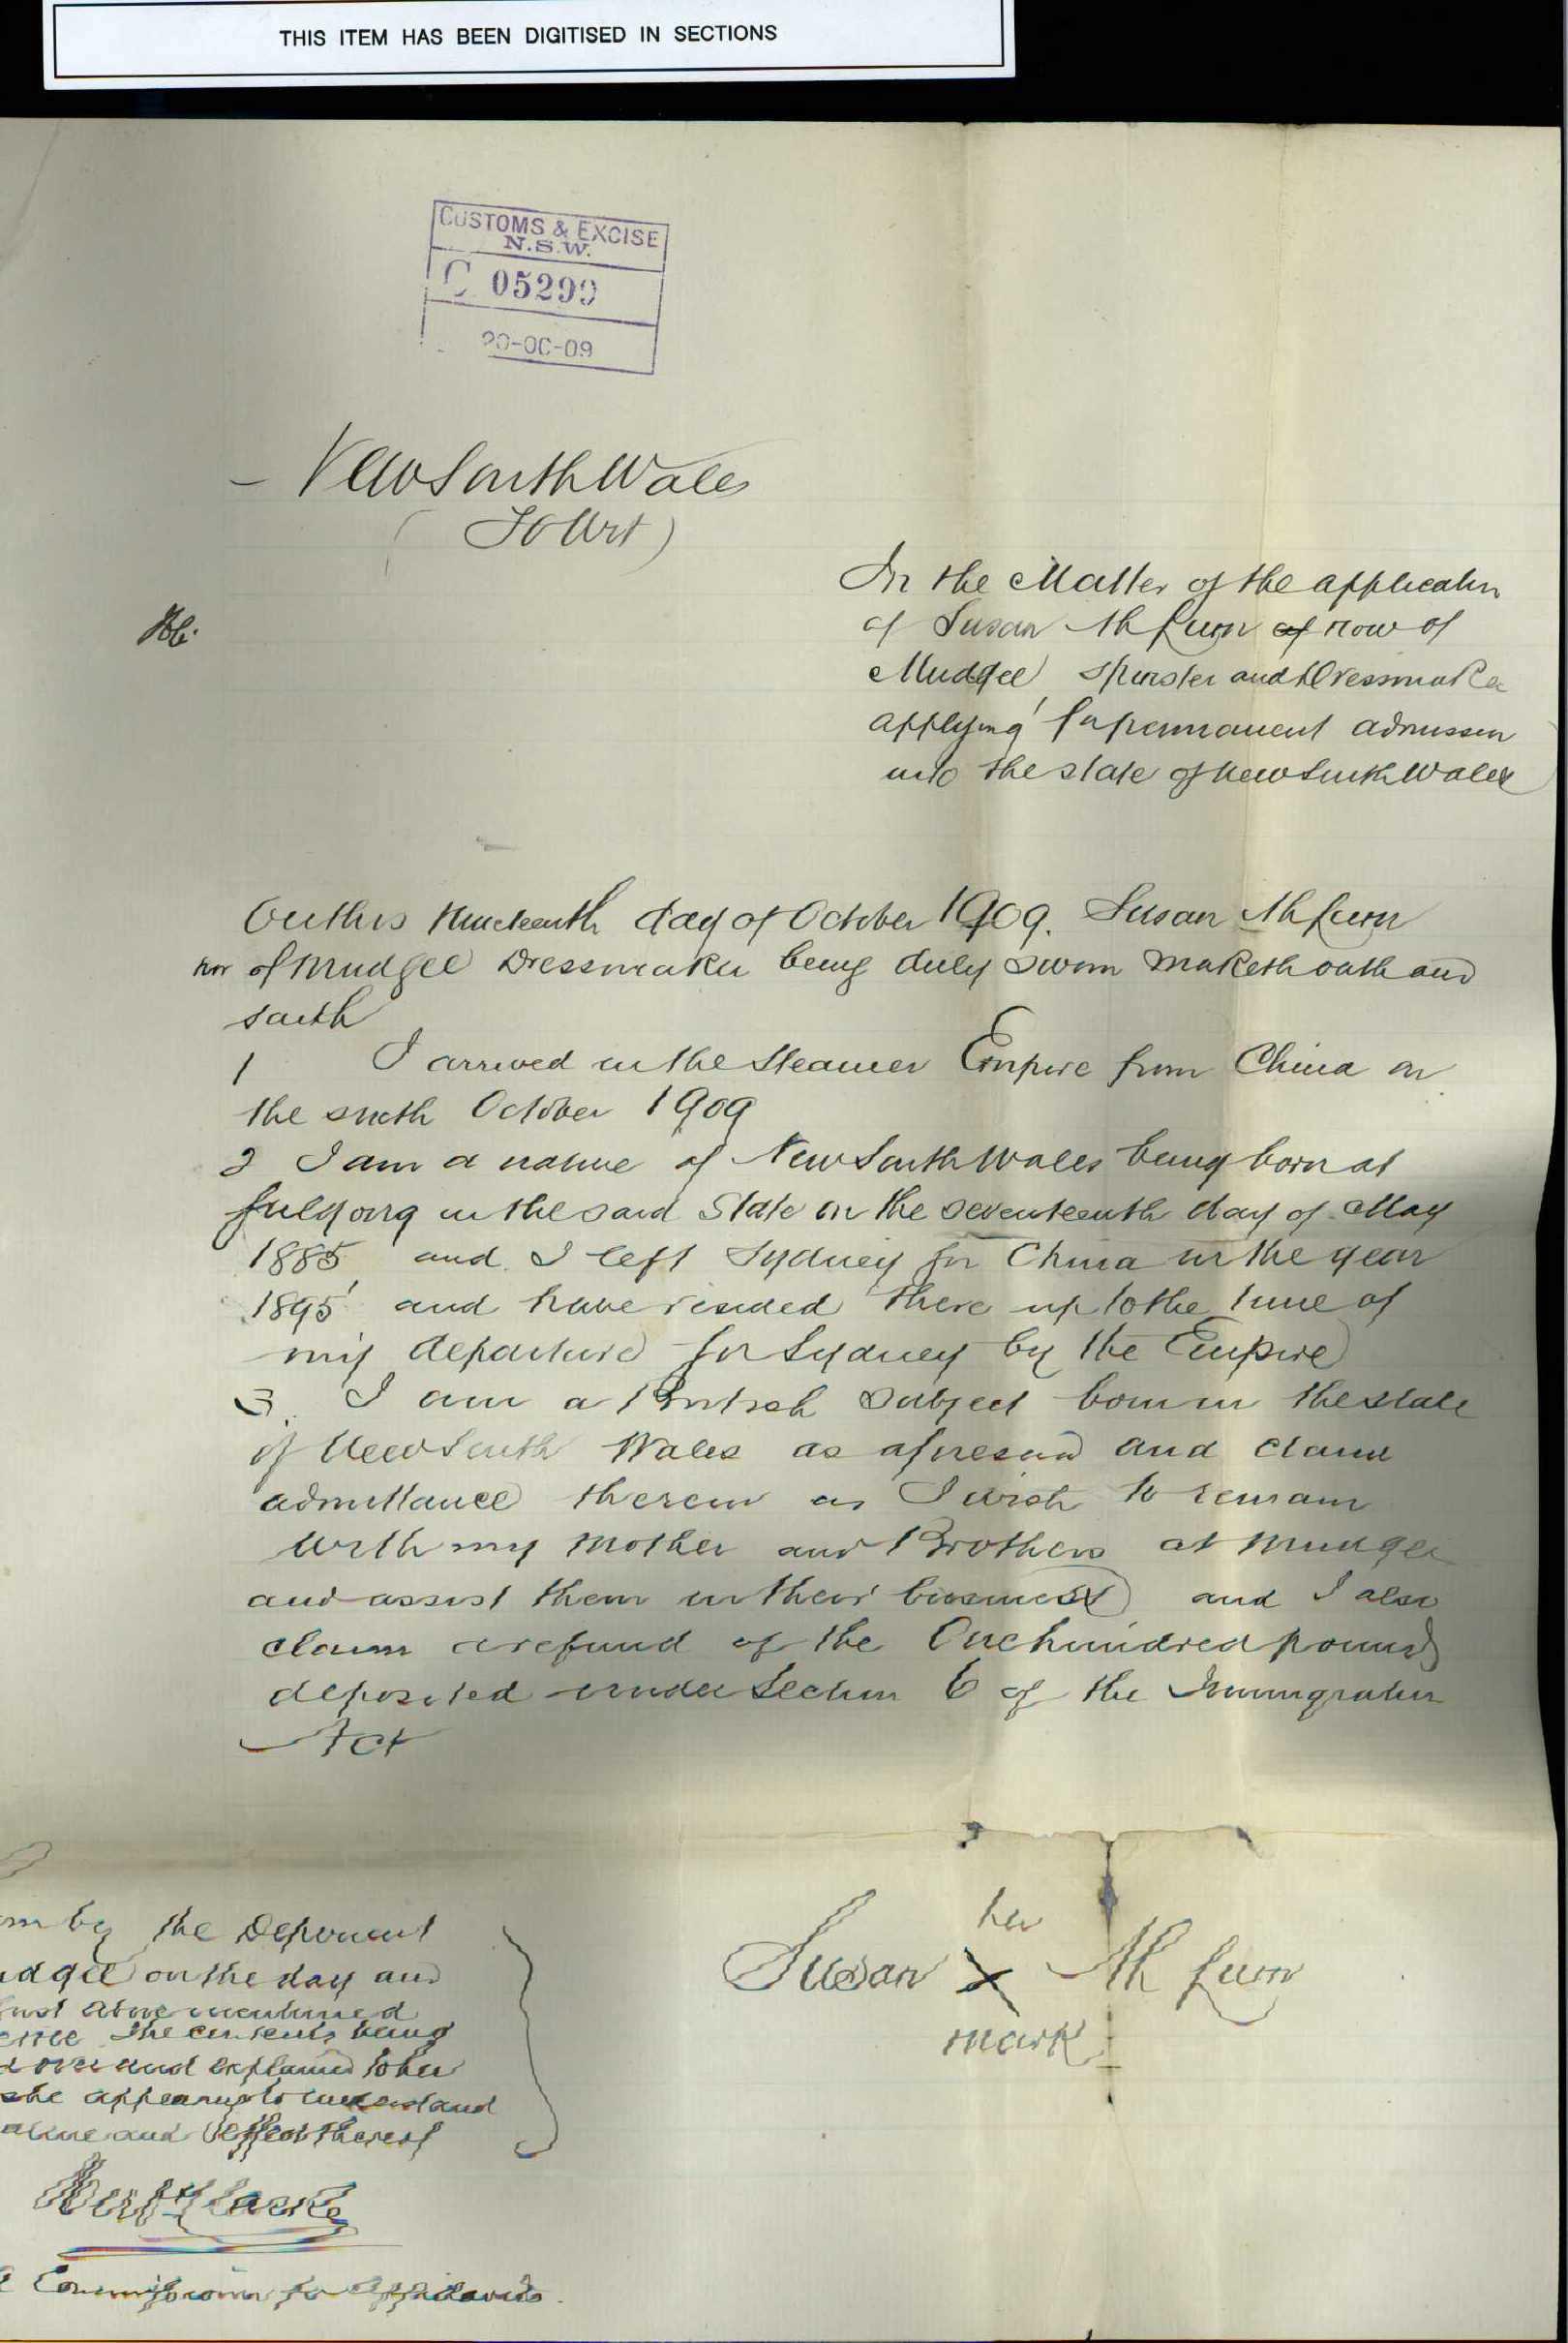 THIS ITEM HAS BEEN DIGITISED IN SECTIONS
CUSTOMS & EXCISE
N.S.W.
C 05299
20-OC-09
New South Wales
(To Wit)
In the Matter of the application
of Susan Ah Lum of now of
Mudgee spinster and Dressmaker
applying for permanent admission
into the state of New South Wales
On this Nineteenth day of October 1909. Susan Ah Lum
now of Mudgee Dressmaker being duly sworn maketh oath and
saith
1 I arrived in the Steamer Empire from China on
the sixth October 1909
2 I am a native of New South Wales being born at
Gulgong in the said State on the seventeenth day of May
1885 and I left Sydney for China in the year
1895 and have resided there up to the time of
my departure for Sydney by the Empire
3. I am a British subject born in the state
of New South Wales as aforesaid and claim
admittance therein as I wish to remain
with my Mother and Brothers at Mudgee
and assist them in their business and I also
claim a refund of the One hundred pounds
deposited under Section 6 of the Immigration
Act
by the Deponent
on the day and
above mentioned
the contents being
over and explained to her
she appearing to understand
and effect thereof
Commissioner for Affidavits.
her
Susan X Ah Lum
mark